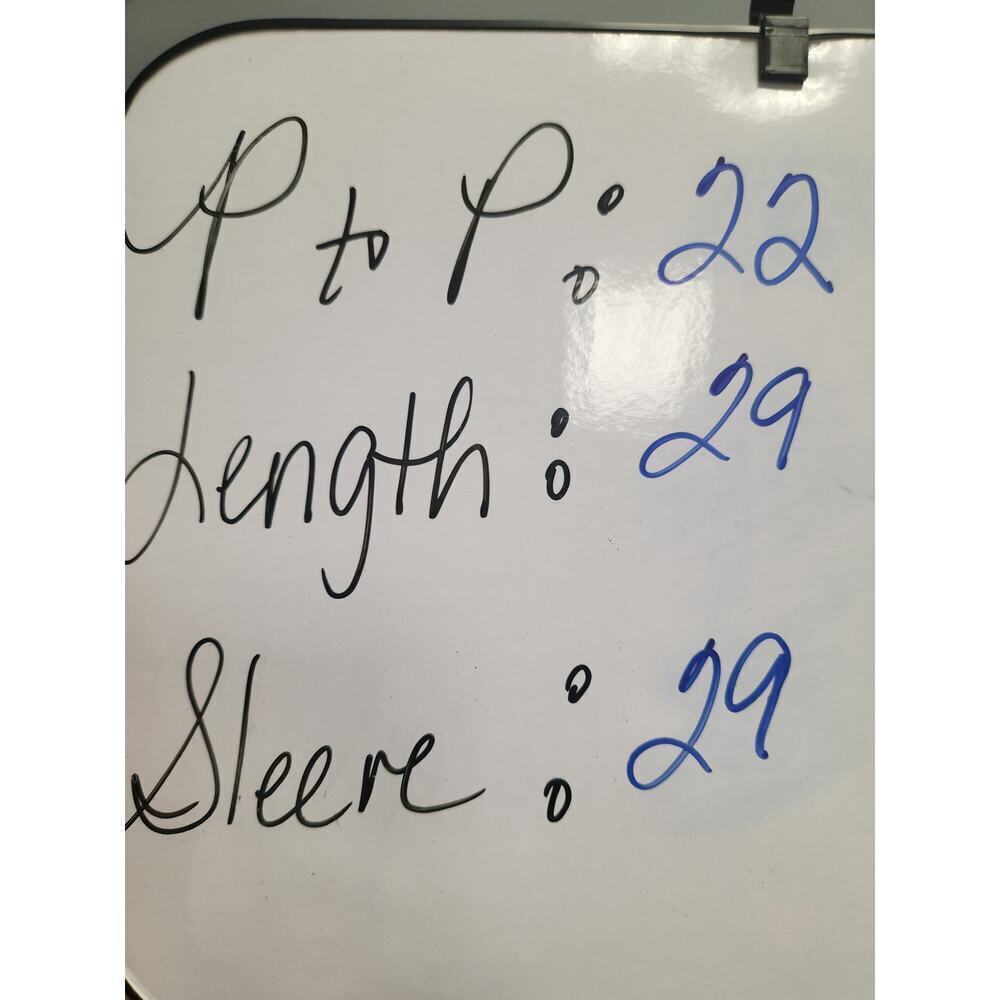 P to P: 22
Length: 29
Sleeve: 29